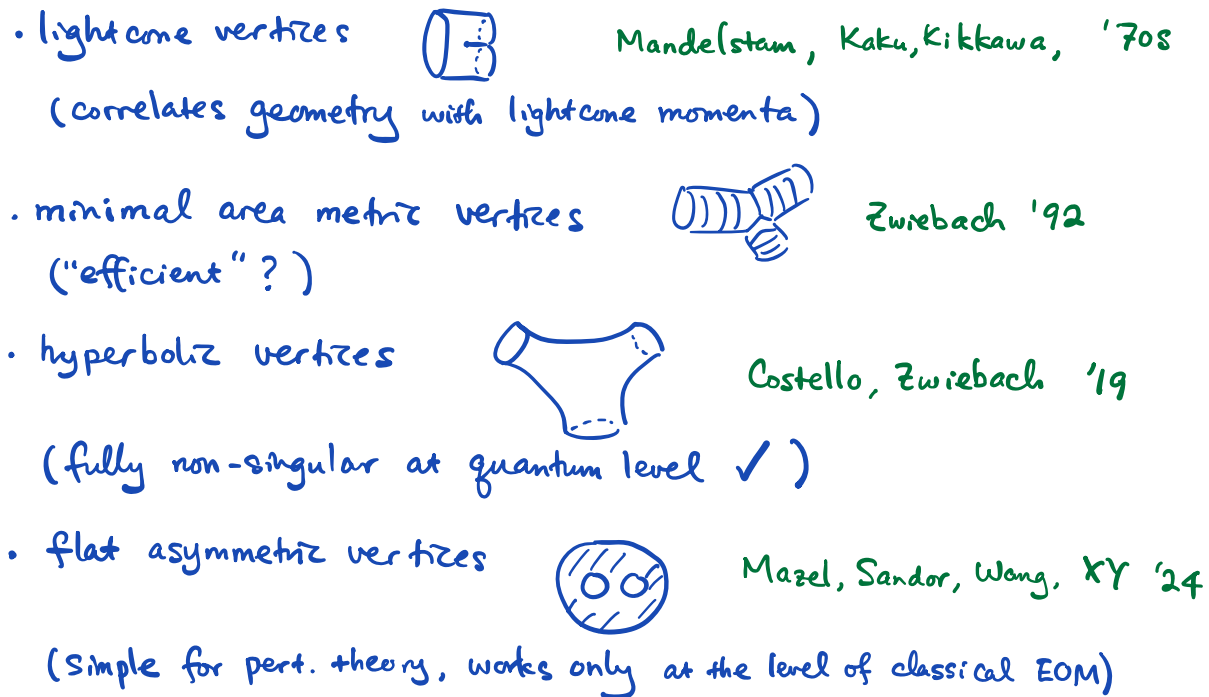 • lightcone vertices Mandelstam, Kaku, Kikkawa, '70s
(correlates geometry with lightcone momenta)
• minimal area metric vertices Zwiebach '92
("efficient"?)
• hyperbolic vertices Costello, Zwiebach '19
(fully non-singular at quantum level ✓)
• flat asymmetric vertices Mazel, Sandor, Wang, XY '24
(simple for pert. theory, works only at the level of classical EOM)